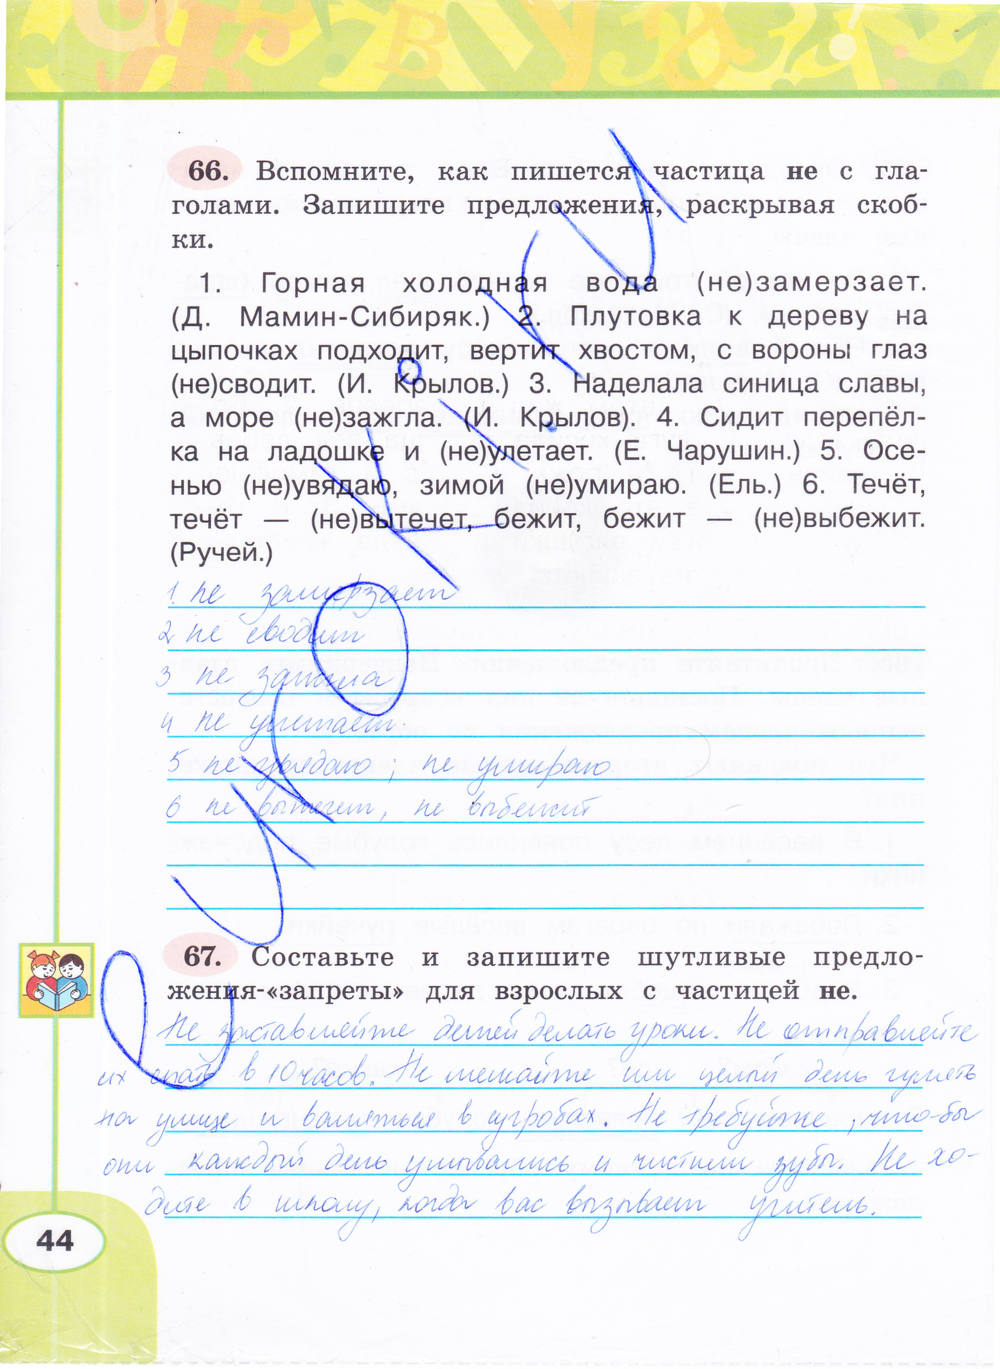 66. Вспомните, как пишется частица не с гла-
голами. Запишите предложения, раскрывая скоб-
ки.
1. Горная холодная вода (не)замерзает.
(Д. Мамин-Сибиряк.) 2. Плутовка к дереву на
цыпочках подходит, вертит хвостом, с вороны глаз
(не)сводит. (И. Крылов.) 3. Наделала синица славы,
а море (не)зажгла. (И. Крылов). 4. Сидит перепёл-
ка на ладошке и (не)улетает. (Е. Чарушин.) 5. Осе-
нью (не)увядаю, зимой (не)умираю. (Ель.) 6. Течёт,
течёт — (не)вытечет, бежит, бежит — (не)выбежит.
(Ручей.)
1. не замерзает
2 не сводит
3 не зажгла
4 не улетает.
5 не увядаю, не умираю
6 не вытечет, не выбежит
67. Составьте и запишите шутливые предло-
жения-«запреты» для взрослых с частицей не.
Не заставляйте детей делать уроки. Не отправляйте
их спать в 10 часов. Не мешайте им целый день гулять
на улице и валяться в сугробах. Не требуйте, что-бы
они каждый день умывались и чистили зубы. Не хо-
дите в школу, когда вас вызывает учитель.
44